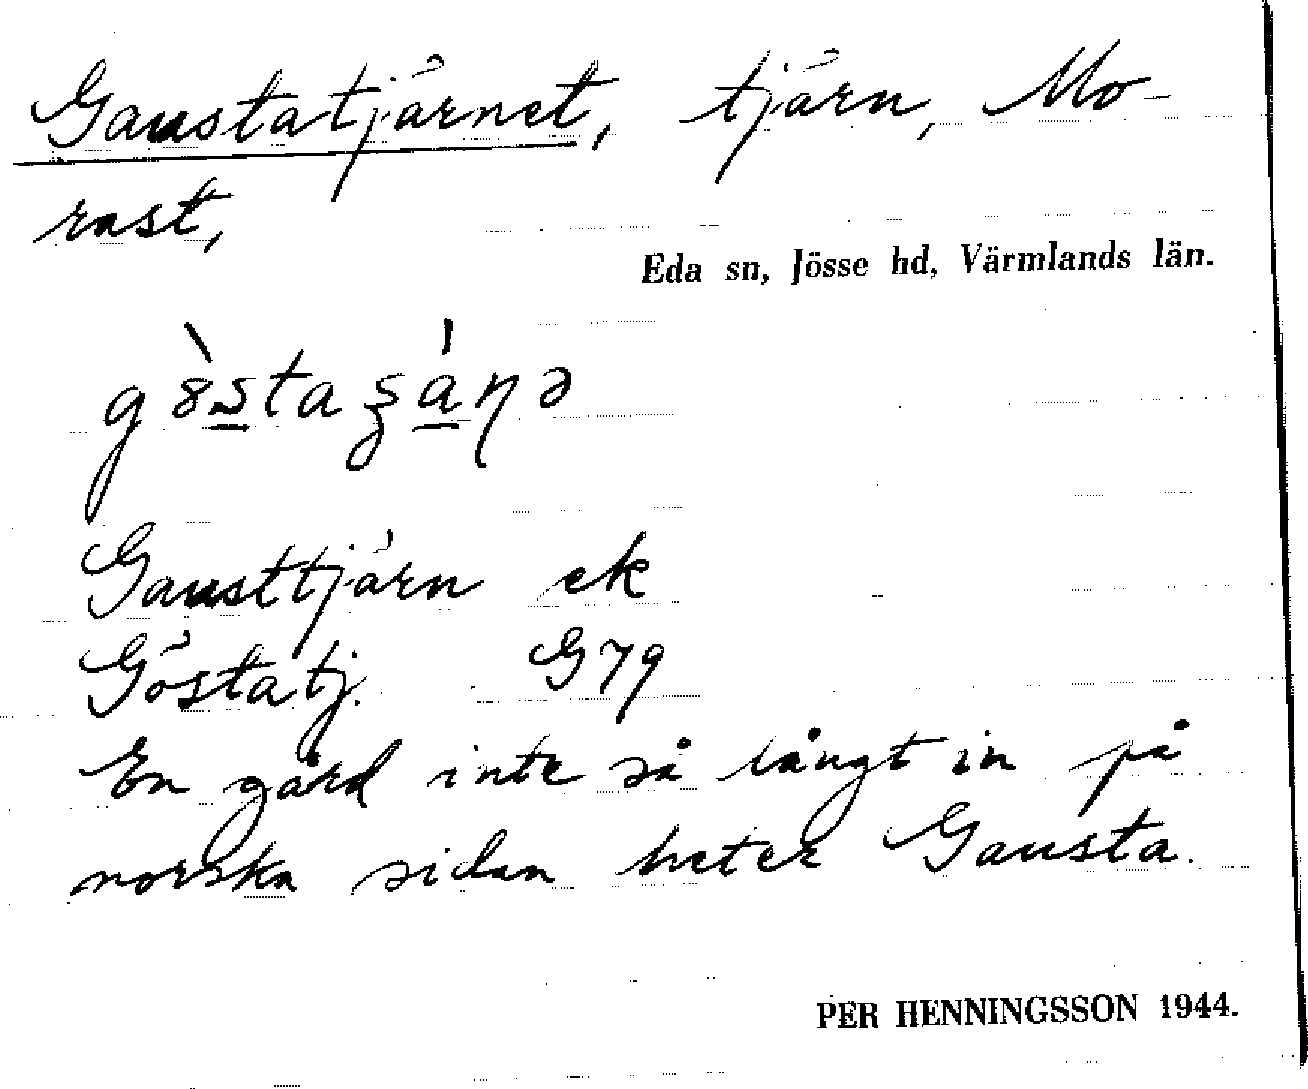 Gaustatjärnet, tjärn, Mo-
rast,
Eda sn, Jösse hd, Värmlands län.
Gausttjärn ek
Göstatj. G79
En gård inte så långt in på
norska sidan heter Gausta.
PER HENNINGSSON 1944.